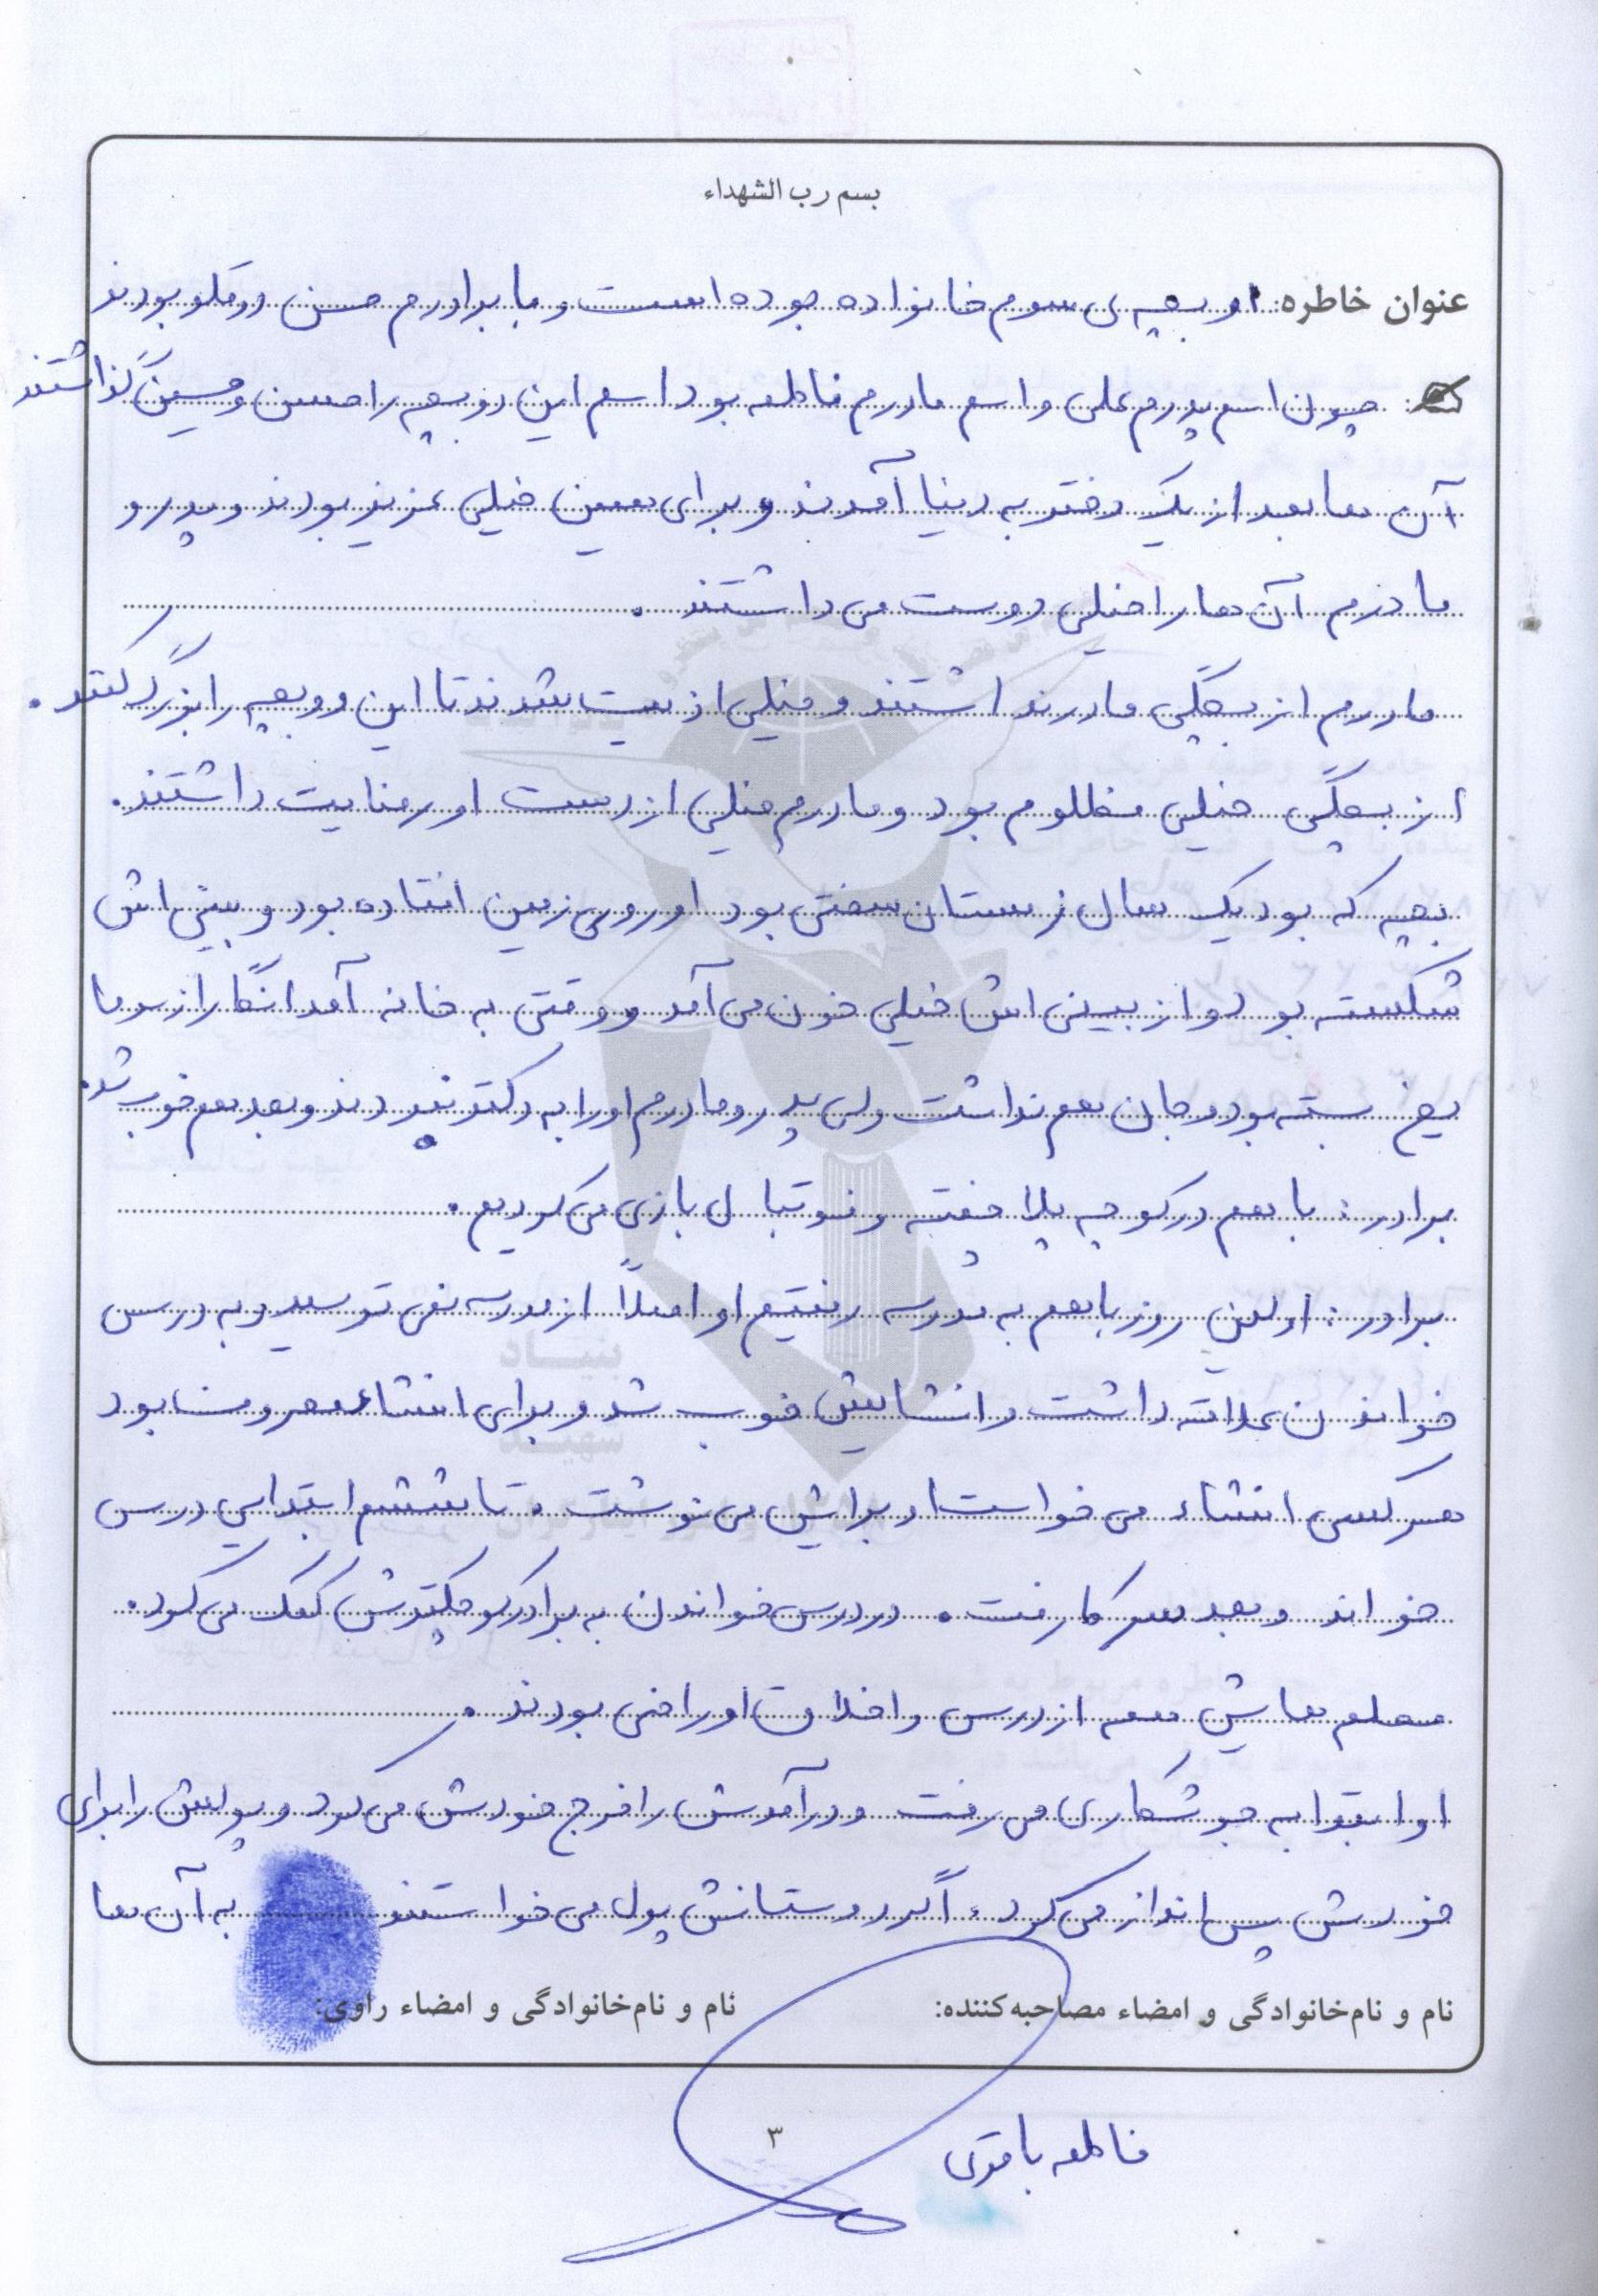 بسم رب الشهداء
عنوان خاطره: او بچه ی سوم خانواده بوده است و با برادرم حسن دوقلو بودند
چون اسم پدرم علی و اسم مادرم فاطمه بود اسم این دو بچه را حسن و حسین گذاشتند
آن ها بعد از یک دختر به دنیا آمدند و برای همین خیلی عزیز بودند و پدر و
مادرم آن ها را خیلی دوست می داشتند .
مادرم از بچگی مادر نداشتند و خیلی اذیت شدند تا این دو بچه را بزرگ کنند .
از بچگی خیلی مظلوم بود و مادرم خیلی از دست او رضایت داشتند .
بچه که بود یک سال زمستان سختی بود او روی زمین افتاده بود و بینی اش
شکسته بود و از بینی اش خیلی خون می آمد و وقتی به خانه آمد انگار از سرما
یخ بسته بود و جان هم نداشت ولی پدر و مادرم او را به دکتر نبردند و بعد هم خوب شد .
برادر : با هم در کوچه پلا چفته و فوتبال بازی می کردیم .
برادر : اولین روز با هم به مدرسه رفتیم او اصلاً از مدرسه نمی ترسید و به درس
خواندن علاقه داشت و انشایش خوب شد و برای انشاء معروف بود
هر کسی انشاء می خواست او برایش می نوشت . تا ششم ابتدایی درس
خواند و بعد سر کار رفت . در درس خواندن به برادر کوچکترش کمک می کرد .
معلم هایش همه از درس و اخلاق او راضی بودند .
او ابتدا به جوشکاری می رفت و درآمدش را خرج خودش می کرد و پولش را برای
خودش پس انداز می کرد . اگر دوستانش پول می خواستند به آن ها
نام و نام‌خانوادگی و امضاء مصاحبه‌کننده: نام و نام‌خانوادگی و امضاء راوی:
فاطمه باقری
۳
بنیاد
شهید